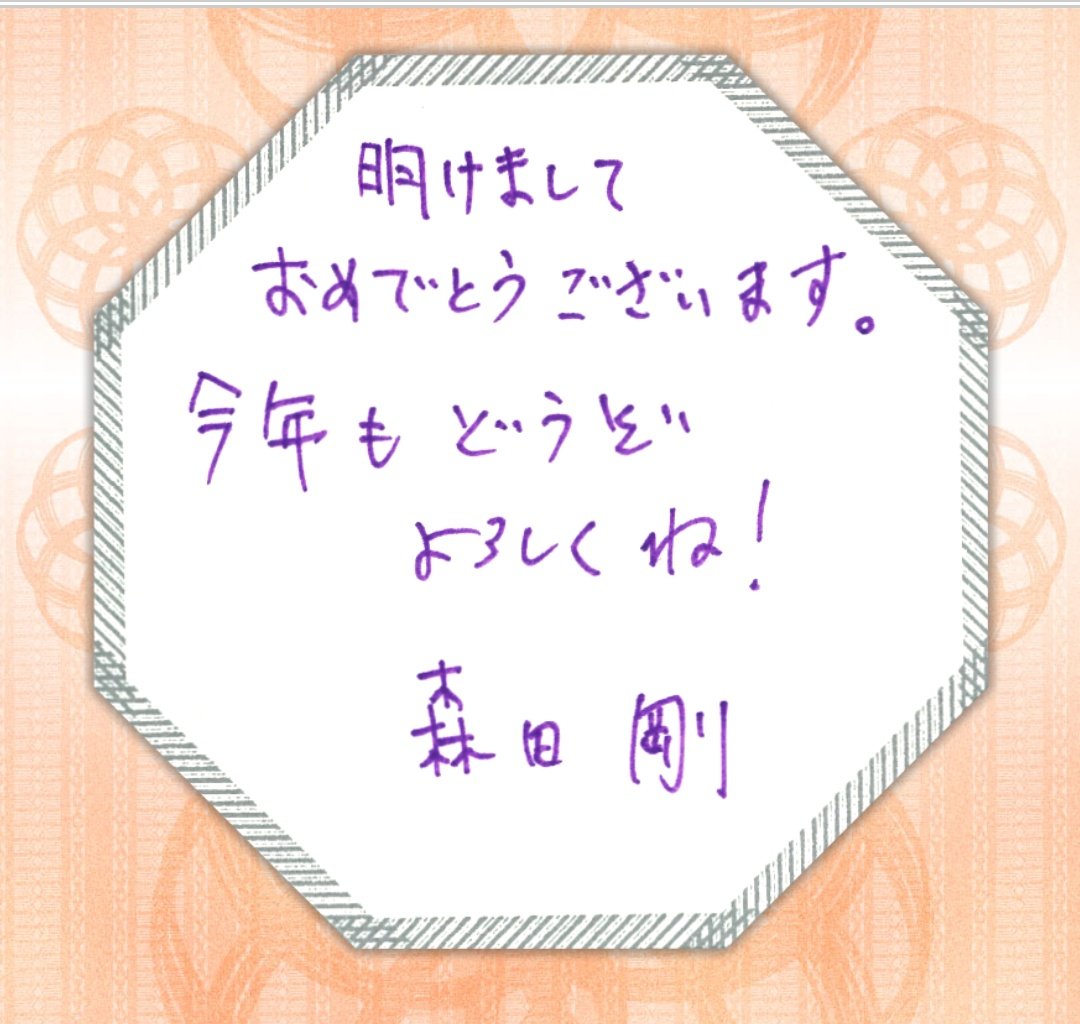 明けまして
おめでとうございます。
今年もどうぞ
よろしくね!
森田 剛